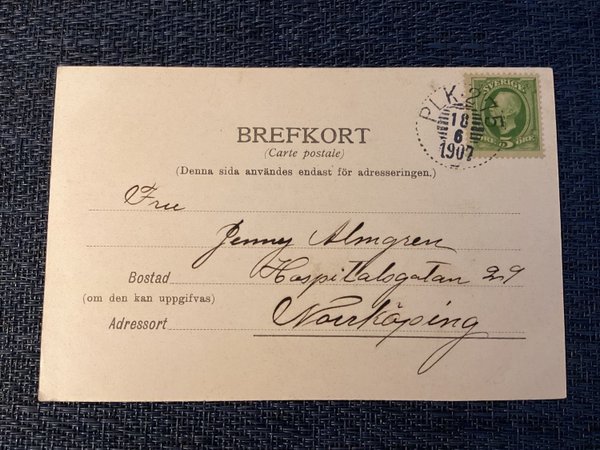 SVERIGE
PLK. 2
18
6
1907
BREFKORT
(Carte postale)
(Denna sida användes endast för adresseringen.)
Fru
Jenny Almgren
Bostad Hospitalsgatan 29
(om den kan uppgifvas)
Adressort Norrköping